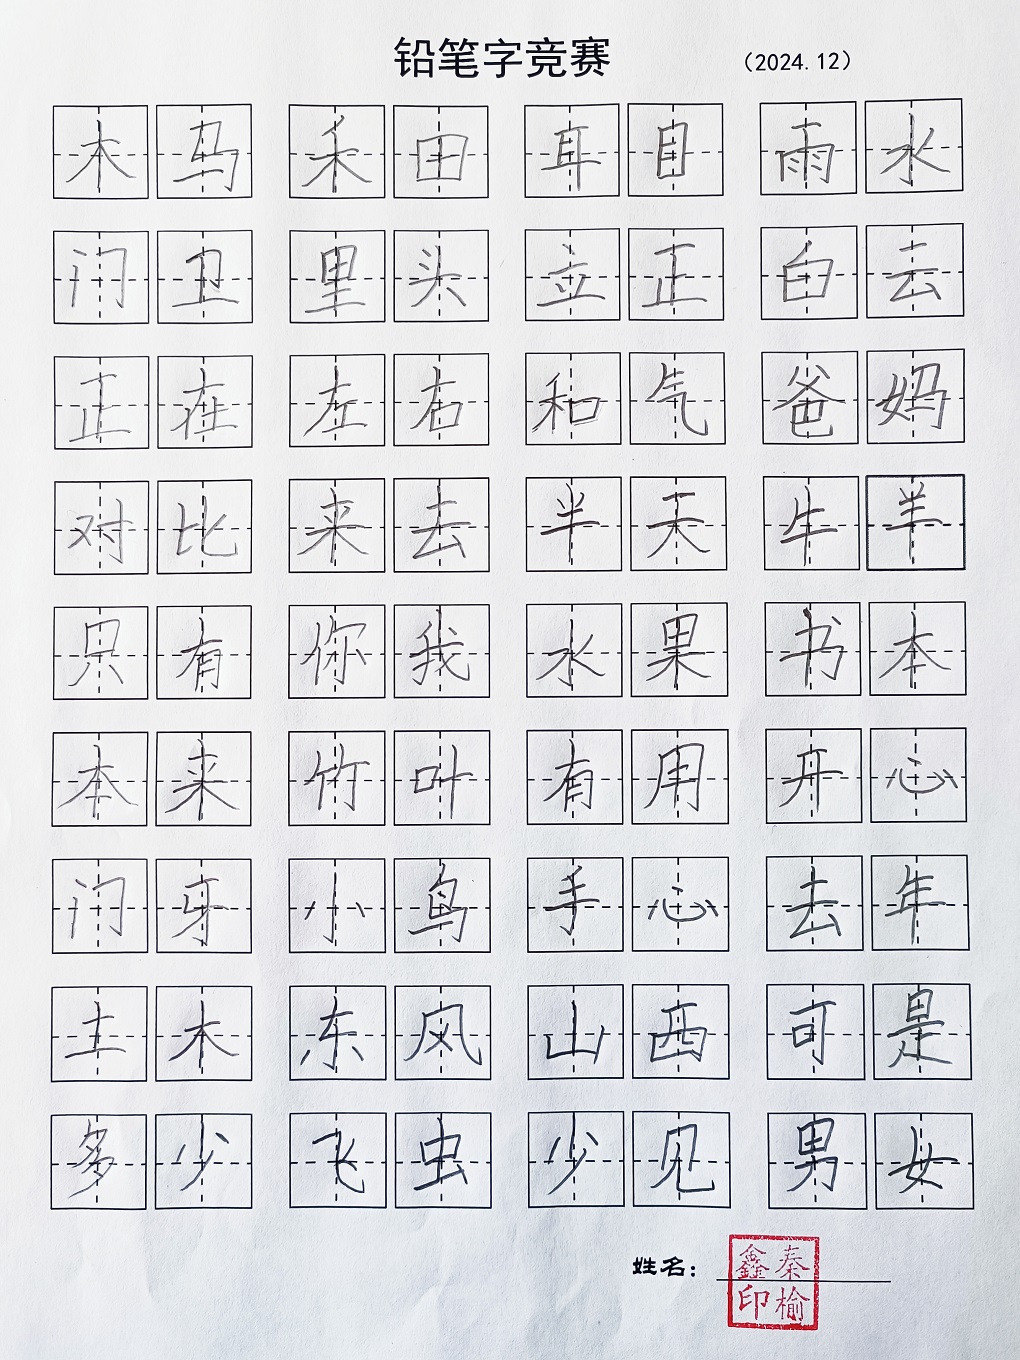 铅笔字竞赛 （2024.12）
木马 禾田 耳目 雨水
门卫 里头 立正 白云
正在 左右 和气 爸妈
对比 来去 半天 牛羊
只有 你我 水果 书本
本来 竹叶 有用 开心
门牙 小鸟 手心 去年
土木 东风 山西 可是
多少 飞虫 少见 男女
姓名：
秦榆鑫印